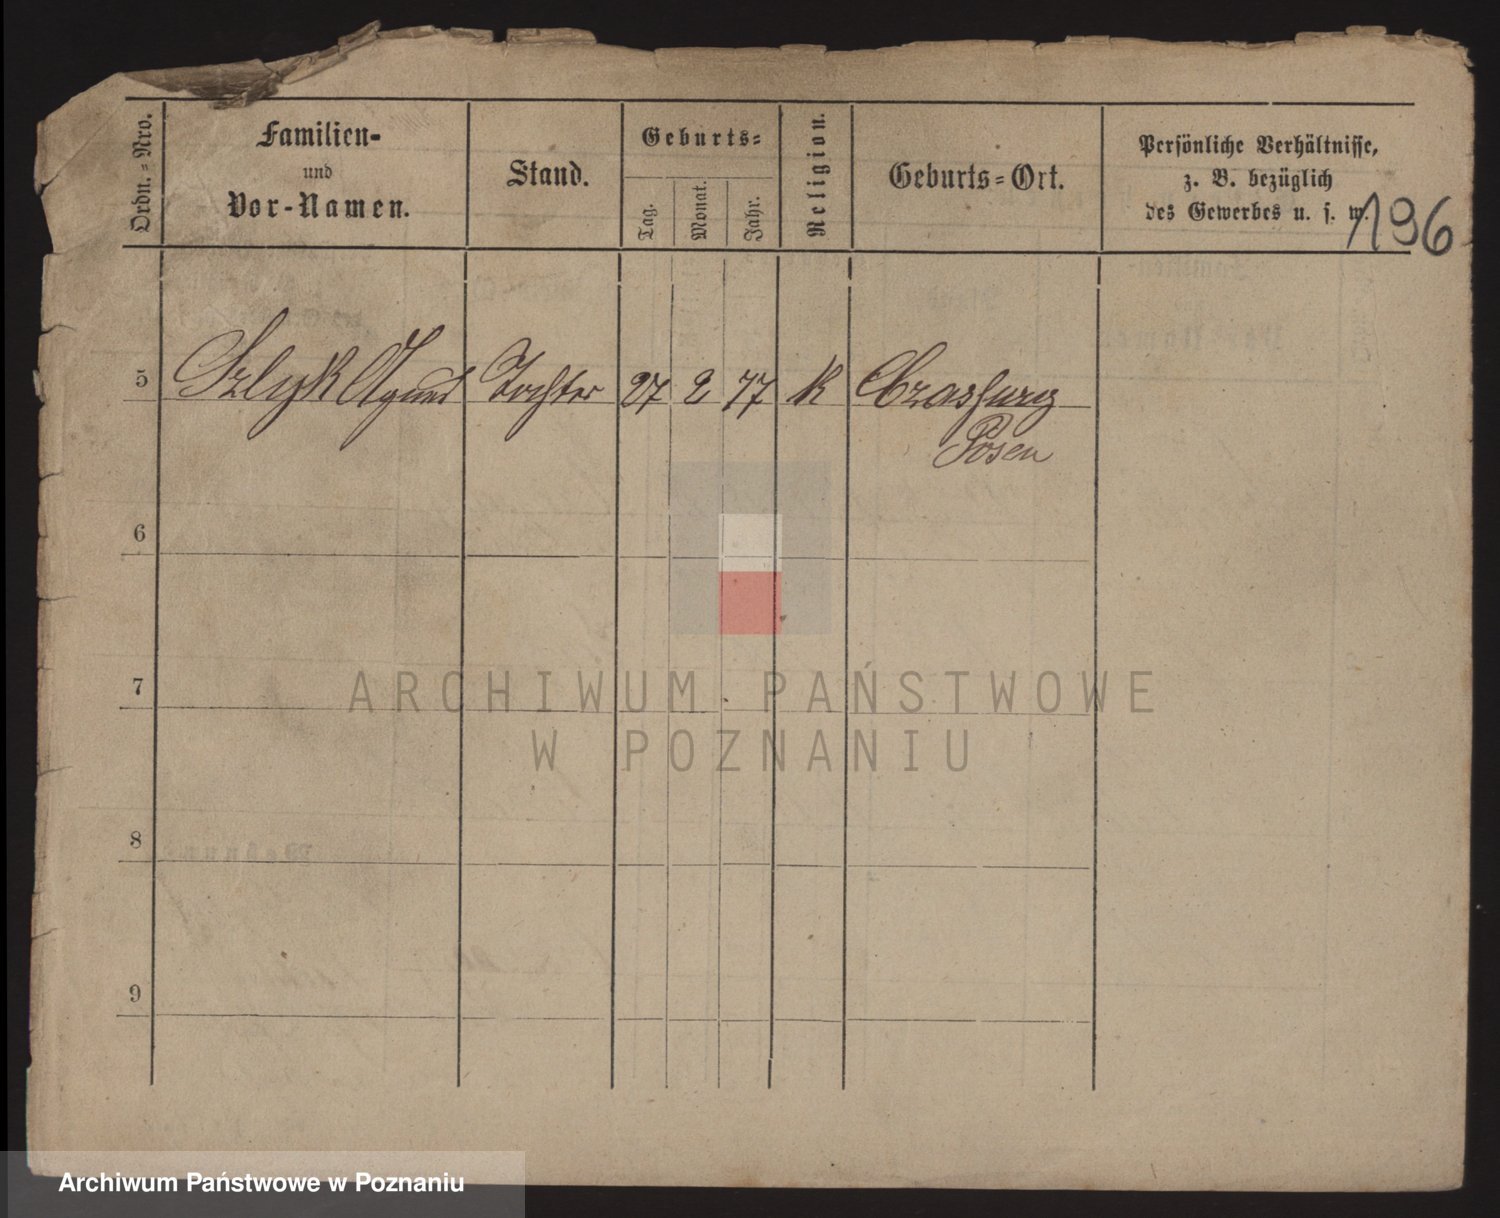 Ordn.-Nro.
Familien-
und
Vor-Namen.
Stand.
Geburts-
Tag.
Monat.
Jahr.
Religion.
Geburts-Ort.
Persönliche Verhältnisse,
z. B. bezüglich
des Gewerbes u. s. w.
196
5 Szlyk Tochter 27 2 77 K
Posen
6
7
8
9
ARCHIWUM PAŃSTWOWE
W POZNANIU
Archiwum Państwowe w Poznaniu